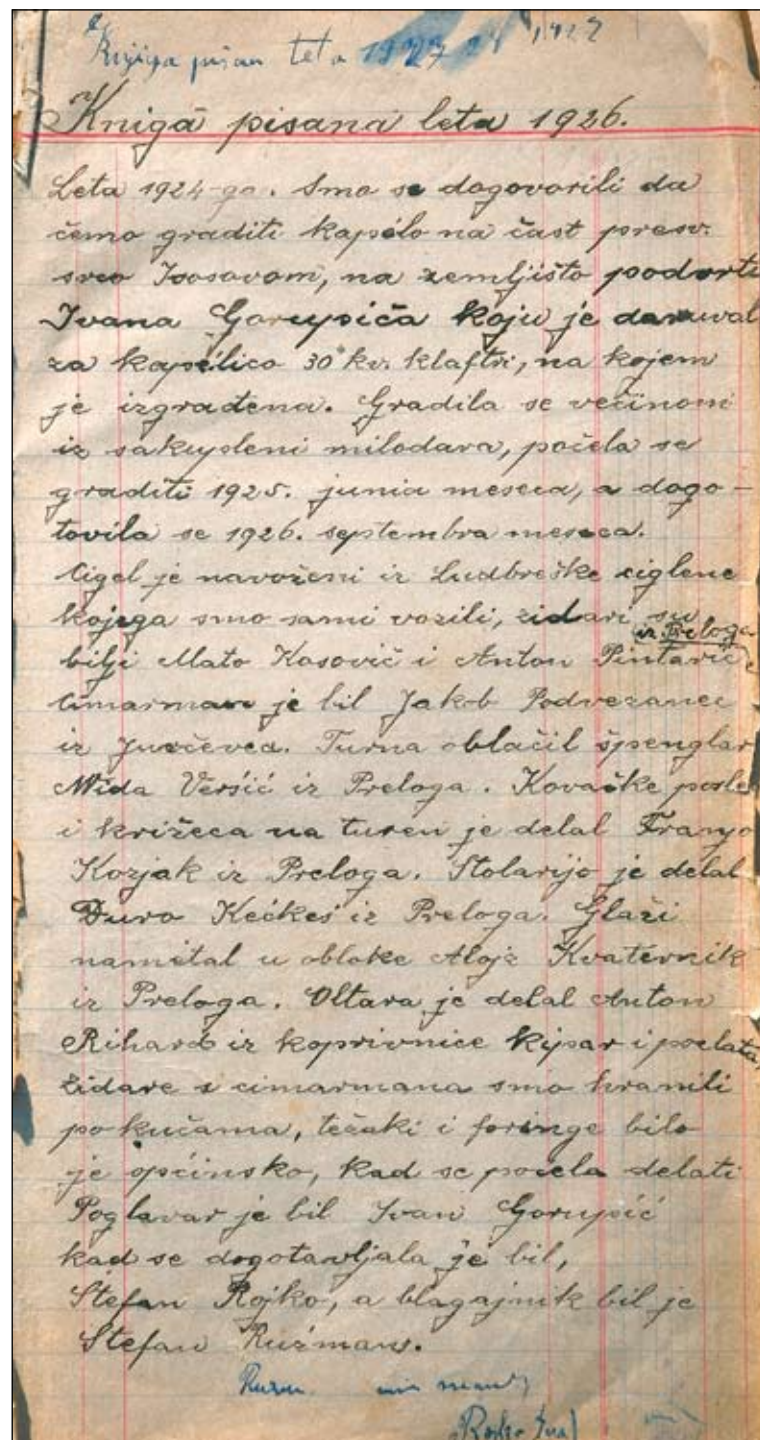 Knjiga pisan leta 1927
Kniga pisana leta 1926.
Leta 1924-go. Smo se dogovorili da
ćemo graditi kapelo na čast presv.
srco Isosovom, na zemljišto podvrti
Ivana Gorupsića koju je daruval
za kapelico 30 kv. klaftri, na kojem
je izgrađena. Gradila se većinom
iz sakupleni milodara, počela se
graditi 1925. junia meseca, a dogo-
tovila se 1926. septembra meseca.
Cigel je navoženi iz Ludbreške ciglene
kojega smo sami vozili, zidari su
bilji Mato Kosović i Anton Pintarić iz Preloga
Cimarman je bil Jakob Podvezanec
iz Jurčevca. Turna oblačil špenglar
Mida Veršić iz Preloga. Kovačke posle
i križeca na turen je delal Franjo
Kozjak iz Preloga. Stolarijo je delal
Đuro Kečkeš iz Preloga. Glaži
nametal u obloke Alojz Kvaternik
iz Preloga. Oltara je delal Anton
Rihard iz koprivnice kipar i pozlata,
zidare i cimarmana smo hranili
po kučama, težaki i foringe bilo
je općinsko, kad se počela delati
Poglavar je bil Ivan Gorupsić
kad se dogotavljala je bil,
Štefan Rojko, a blagajnik bil je
Štefan Ružman.